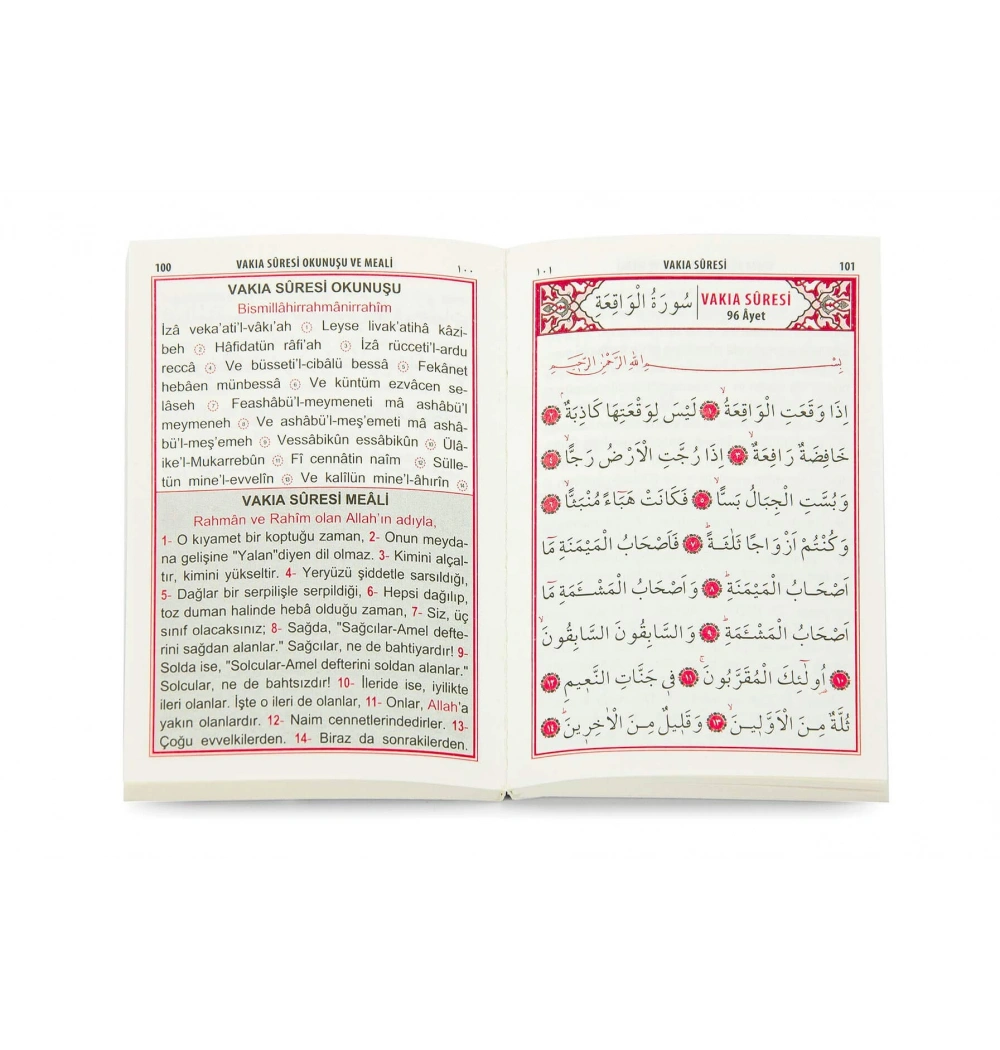 100 VAKIA SÛRESİ OKUNUŞU VE MEALİ ١٠٠
VAKIA SÛRESİ OKUNUŞU
Bismillâhirrahmânirrahîm
İzâ veka'ati'l-vâkı'ah ١ Leyse livak'atihâ kâzi-
beh ٢ Hâfidatün râfi'ah ٣ İzâ rücceti'l-ardu
reccâ ٤ Ve büsseti'l-cibâlü bessâ ٥ Fekânet
hebâen münbessâ ٦ Ve küntüm ezvâcen se-
lâseh ٧ Feashâbü'l-meymeneti mâ ashâbü'l
meymeneh ٨ Ve ashâbü'l-meş'emeti mâ ashâ-
bü'l-meş'emeh ٩ Vessâbikûn essâbikûn ١٠ Ülâ-
ike'l-Mukarrebûn ١١ Fî cennâtin naîm ١٢ Sülle-
tün mine'l-evvelîn ١٣ Ve kalîlün mine'l-âhırîn ١٤
VAKIA SÛRESİ MEÂLİ
Rahmân ve Rahîm olan Allah'ın adıyla,
1- O kıyamet bir koptuğu zaman, 2- Onun meyda-
na gelişine "Yalan"diyen dil olmaz. 3- Kimini alçal-
tır, kimini yükseltir. 4- Yeryüzü şiddetle sarsıldığı,
5- Dağlar bir serpilişle serpildiği, 6- Hepsi dağılıp,
toz duman halinde hebâ olduğu zaman, 7- Siz, üç
sınıf olacaksınız; 8- Sağda, "Sağcılar-Amel defte-
rini sağdan alanlar." Sağcılar, ne de bahtiyardır! 9-
Solda ise, "Solcular-Amel defterini soldan alanlar."
Solcular, ne de bahtsızdır! 10- İleride ise, iyilikte
ileri olanlar. İşte o ileri de olanlar, 11- Onlar, Allah'a
yakın olanlardır. 12- Naim cennetlerindedirler. 13-
Çoğu evvelkilerden. 14- Biraz da sonrakilerden.
١٠١ VAKIA SÛRESİ 101
سُورَةُ الْوَاقِعَةِ VAKIA SÛRESİ
96 Âyet
بِسْمِ اللهِ الرَّحْمٰنِ الرَّحِيمِ
اِذَا وَقَعَتِ الْوَاقِعَةُۙ ١ لَيْسَ لِوَقْعَتِهَا كَاذِبَةٌۢ ٢
خَافِضَةٌ رَافِعَةٌۙ ٣ اِذَا رُجَّتِ الْاَرْضُ رَجًّاۙ ٤
وَبُسَّتِ الْجِبَالُ بَسًّاۙ ٥ فَكَانَتْ هَبَٓاءً مُنْبَثًّاۙ ٦
وَكُنْتُمْ اَزْوَاجًا ثَلٰثَةًۜ ٧ فَاَصْحَابُ الْمَيْمَنَةِ مَٓا
اَصْحَابُ الْمَيْمَنَةِۜ ٨ وَاَصْحَابُ الْمَشْـَٔمَةِ مَٓا
اَصْحَابُ الْمَشْـَٔمَةِۜ ٩ وَالسَّابِقُونَ السَّابِقُونَۙ
١٠ اُو۬لٰٓئِكَ الْمُقَرَّبُونَۚ ١١ فِي جَنَّاتِ النَّعِيمِ ١٢
ثُلَّةٌ مِنَ الْاَوَّلِينَۙ ١٣ وَقَلِيلٌ مِنَ الْاٰخِرِينَۜ ١٤